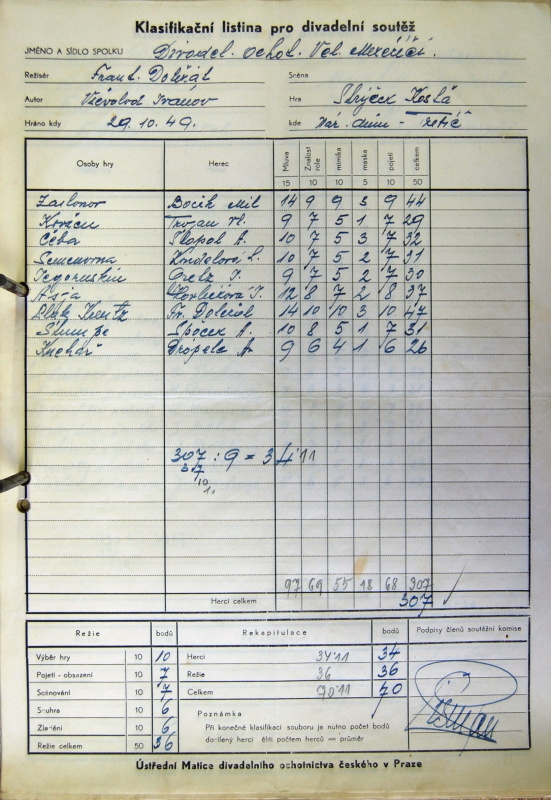 Klasifikační listina pro divadelní soutěž
JMÉNO A SÍDLO SPOLKU Divadel. ochot. Vel. Meziříčí
Režisér Frant. Doležal Scéna
Autor Vsevolod Ivanov Hra Strýček Kosťa
Hráno kdy 29.10.49. kde Nár. dům - Třebíč
Osoby hry Herec Mluva Znalost role mimika maska pojetí celkem
15 10 10 5 10 50
Zaslonov Bocik Mil 14 9 9 3 9 44
Trojan Vl. 9 7 5 1 7 29
Čeba A. 10 7 5 3 7 32
Semenovna L. 10 7 5 2 7 31
9 7 5 2 7 30
Asja Horlíčková J. 12 8 7 2 8 37
Fr. Doležal 14 10 10 3 10 47
A. 10 8 5 1 7 31
Kuchař A. 9 6 4 1 6 26
307 : 9 = 34'11
37
10
1.
97 69 55 18 68 307
Herci celkem 307
Režie bodů Rekapitulace bodů Podpisy členů soutěžní komise
Výběr hry 10 10 Herci 34'11 34
Pojetí - obsazení 10 7 Režie 36 36
Scénování 10 7 Celkem 70'11 70
Souhra 10 6 Poznámka
Zladění 10 6 Při konečné klasifikaci souboru je nutno počet bodů
Režie celkem 50 36 docílený herci děliti počtem herců = průměr
Ústřední Matice divadelního ochotnictva českého v Praze